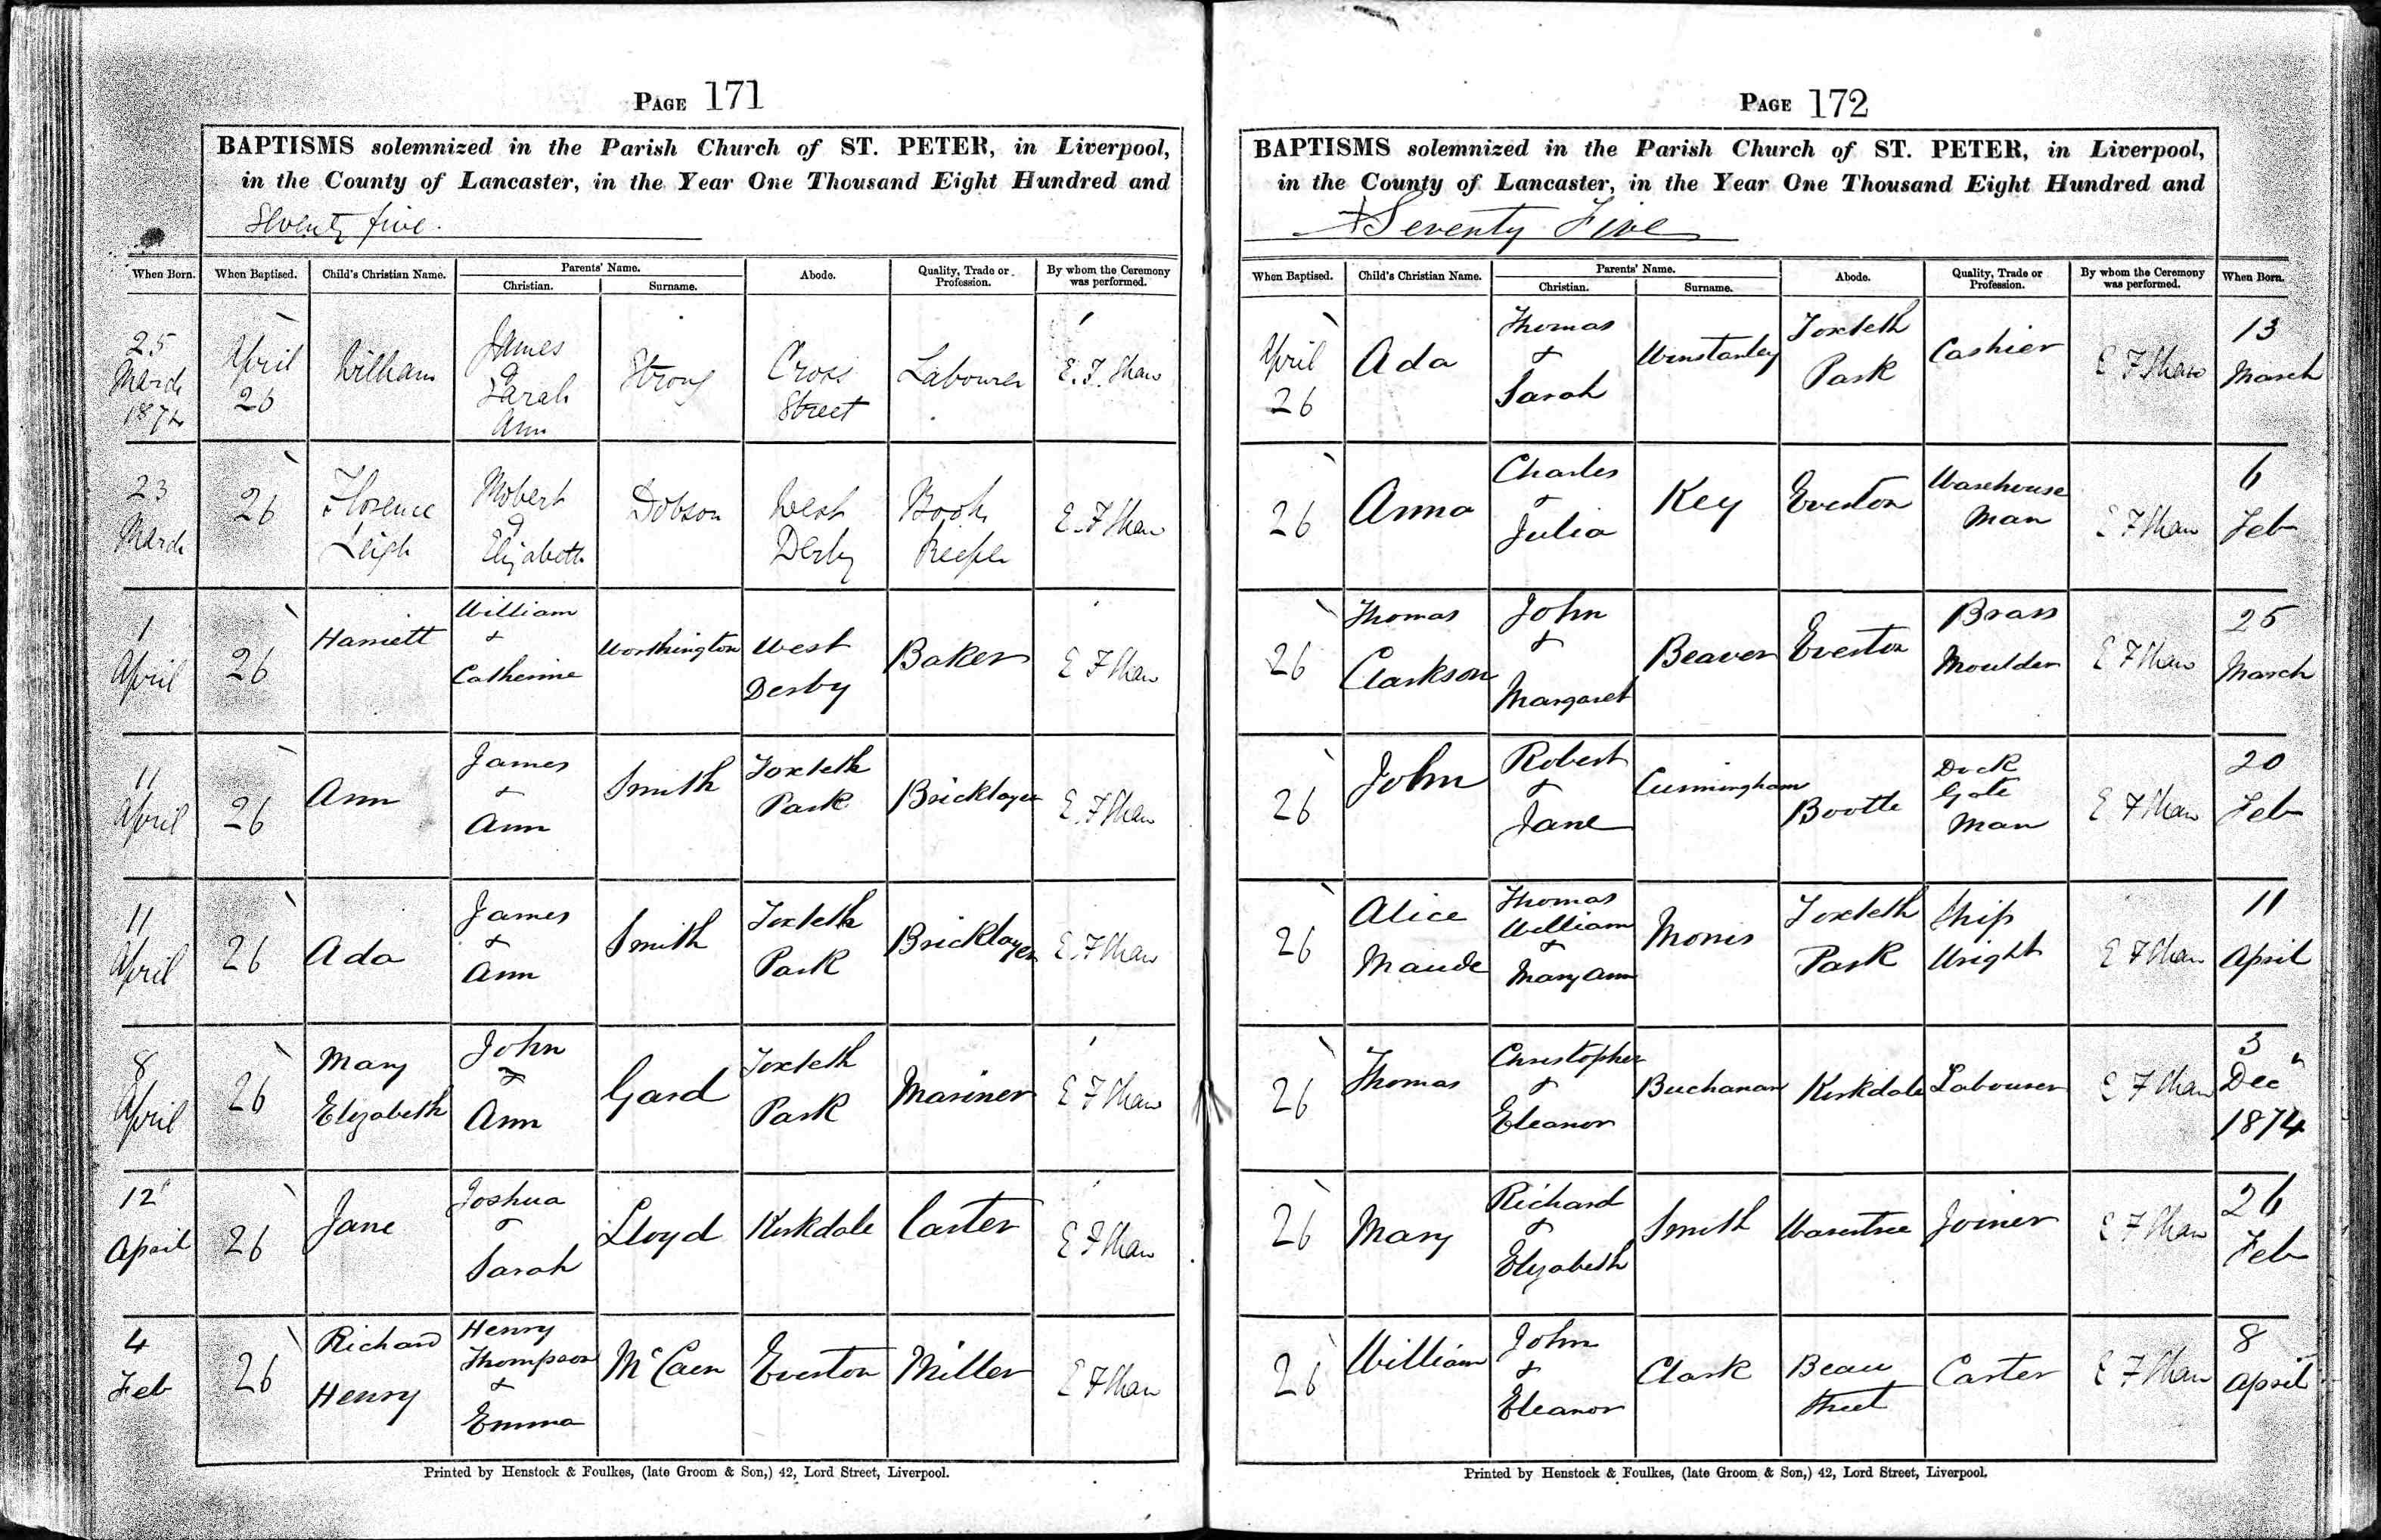 PAGE 171
BAPTISMS solemnized in the Parish Church of ST. PETER, in Liverpool,
in the County of Lancaster, in the Year One Thousand Eight Hundred and
Seventy five.
When Born. When Baptised. Child's Christian Name. Parents' Name. Christian. Surname. Abode. Quality, Trade or Profession. By whom the Ceremony was performed.
25 March 1874 April 26 William James & Sarah Ann Strong Cross Street Labourer E. F. Shaw
23 March 26 Florence Leigh Robert & Elizabeth Dobson West Derby Book Keeper E. F Shaw
1 April 26 Harriett William & Catherine Worthington West Derby Baker E F Shaw
11 April 26 Ann James & Ann Smith Toxteth Park Bricklayer E. F Shaw
11 April 26 Ada James & Ann Smith Toxteth Park Bricklayer E. F Shaw
8 April 26 Mary Elizabeth John & Ann Gard Toxteth Park Mariner E F Shaw
12 April 26 Jane Joshua & Sarah Lloyd Kirkdale Carter E F Shaw
4 Feb 26 Richard Henry Henry Thompson & Emma McCaen Everton Miller E F Shaw
Printed by Henstock & Foulkes, (late Groom & Son,) 42, Lord Street, Liverpool.
PAGE 172
BAPTISMS solemnized in the Parish Church of ST. PETER, in Liverpool,
in the County of Lancaster, in the Year One Thousand Eight Hundred and
Seventy Five
When Baptised. Child's Christian Name. Parents' Name. Christian. Surname. Abode. Quality, Trade or Profession. By whom the Ceremony was performed. When Born.
April 26 Ada Thomas & Sarah Winstanley Toxteth Park Cashier E F Shaw 13 March
26 Anna Charles & Julia Key Everton Warehouse Man E F Shaw 6 Feb
26 Thomas Clarkson John & Margaret Beaver Everton Brass Moulder E F Shaw 25 March
26 John Robert & Jane Cunningham Bootle Dock Gate Man E F Shaw 20 Feb
26 Alice Maude Thomas William & Mary Ann Morris Toxteth Park Ship Wright E F Shaw 11 April
26 Thomas Christopher & Eleanor Buchanan Kirkdale Labourer E F Shaw 3 Dec 1874
26 Mary Richard & Elizabeth Smith Wavertree Joiner E F Shaw 26 Feb
26 William John & Eleanor Clark Beau Street Carter E F Shaw 8 April
Printed by Henstock & Foulkes, (late Groom & Son,) 42, Lord Street, Liverpool.